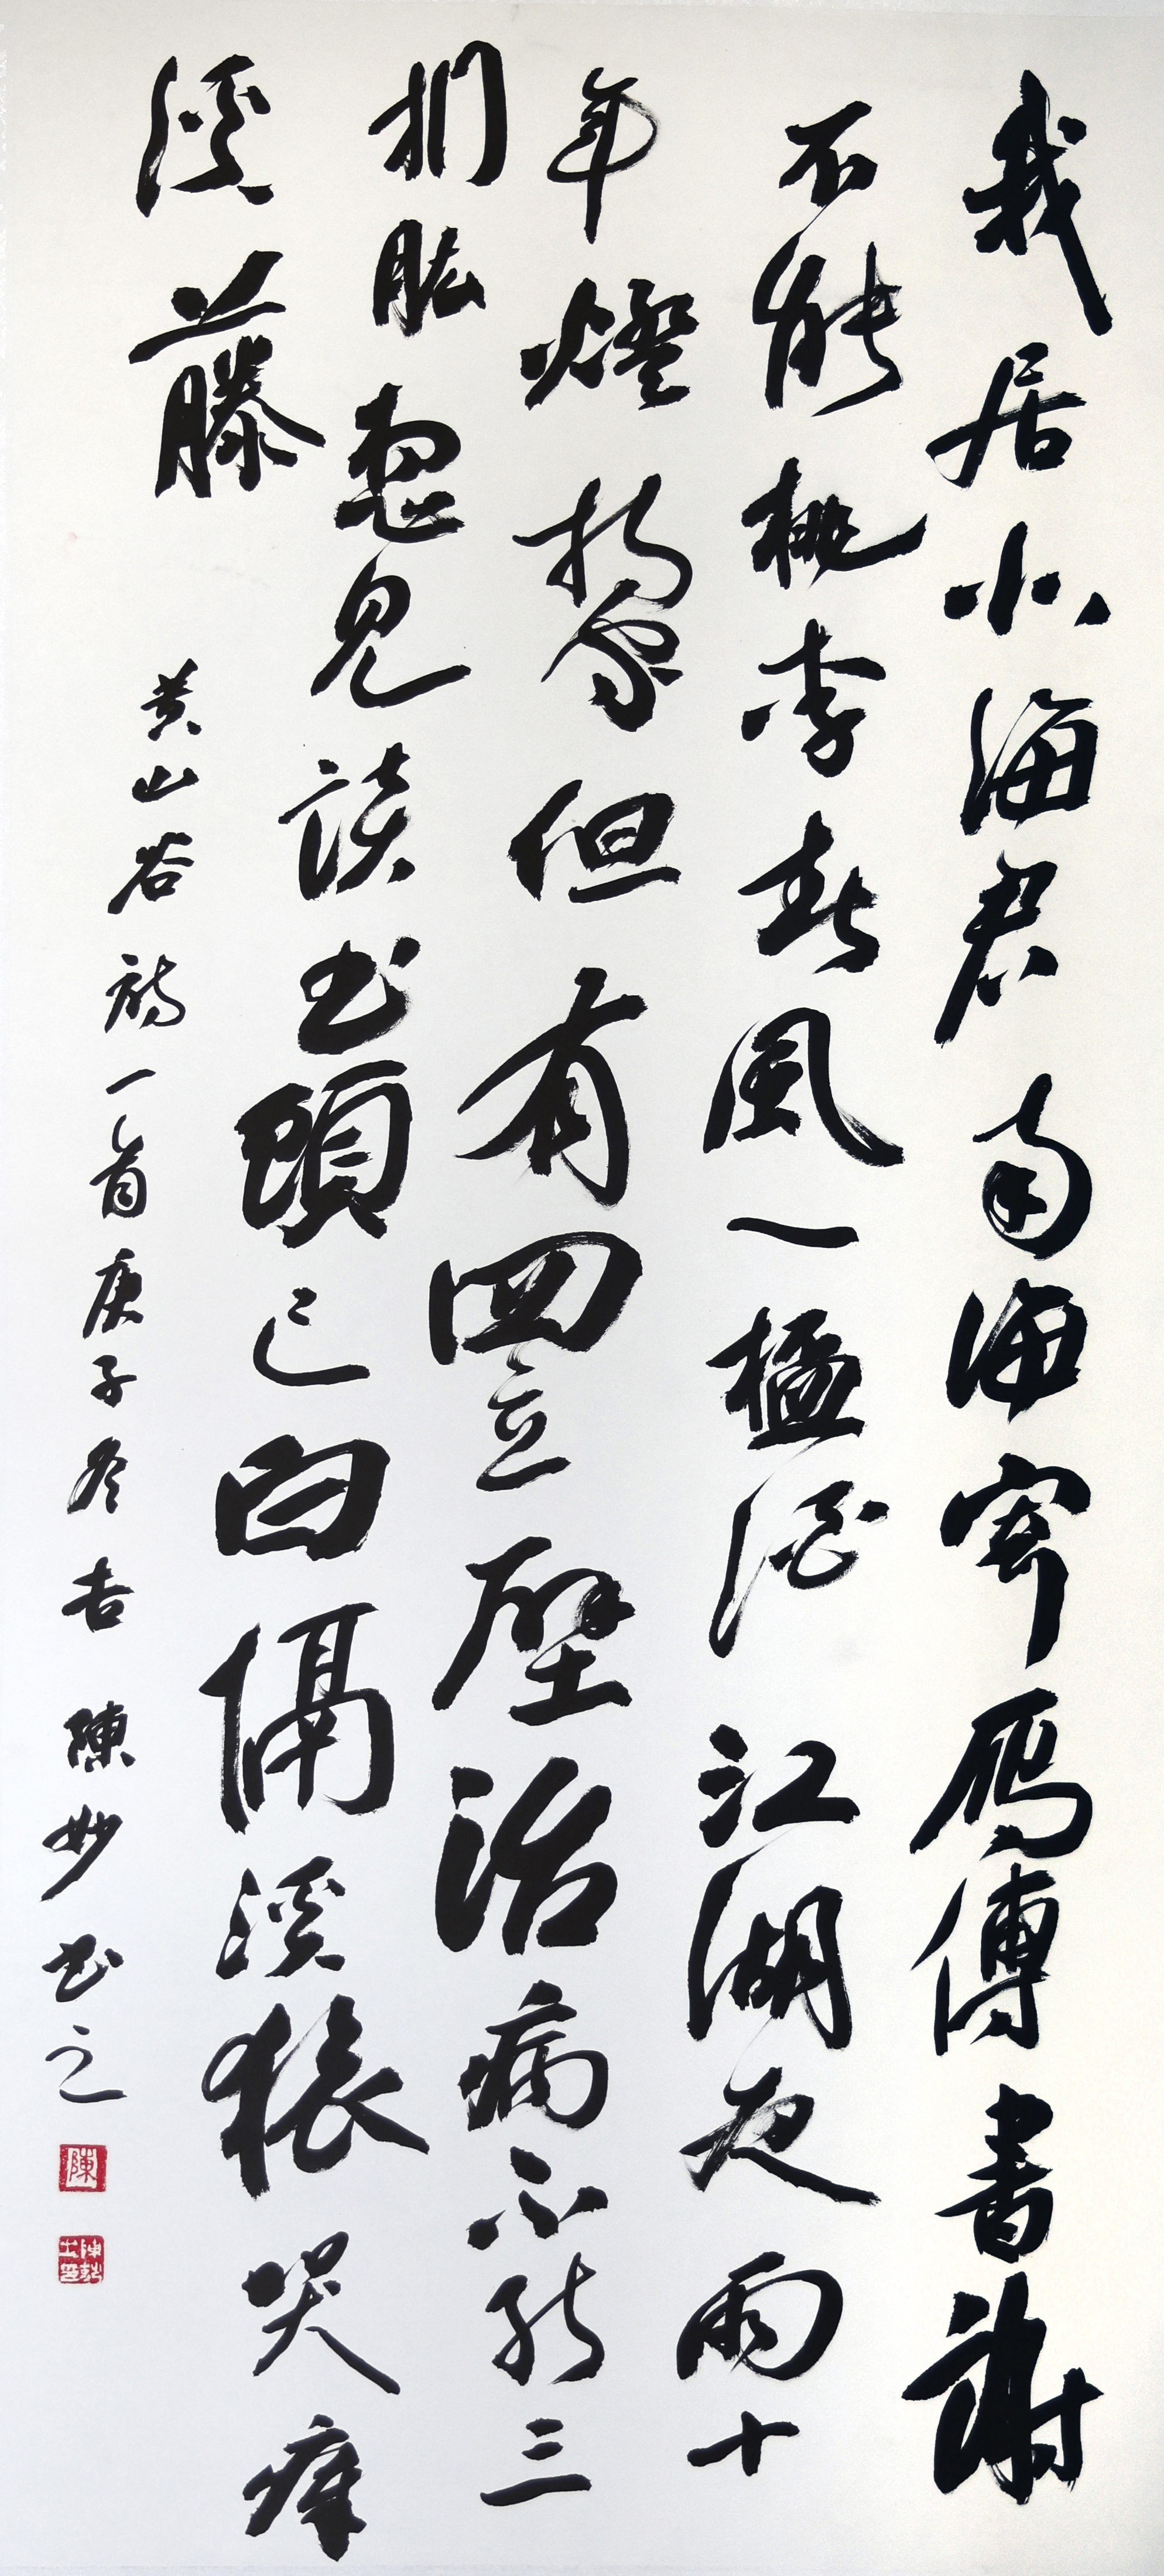 我居北海君南海寄雁傳書謝
不能桃李春風一杯酒江湖夜雨十
年燈持家但有四立壁治病不三
折肱想見讀書頭已白隔溪猿哭瘴
溪藤
黃山谷詩一首庚子冬吉 陳妙書之
陳